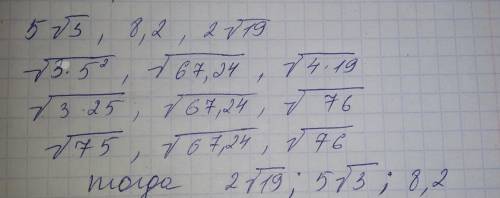 5√3, 8,2, 2√19
√3·5², √67,24, √4·19
√3·25, √67,24, √76
√75, √67,24, √76
тогда 2√19; 5√3; 8,2